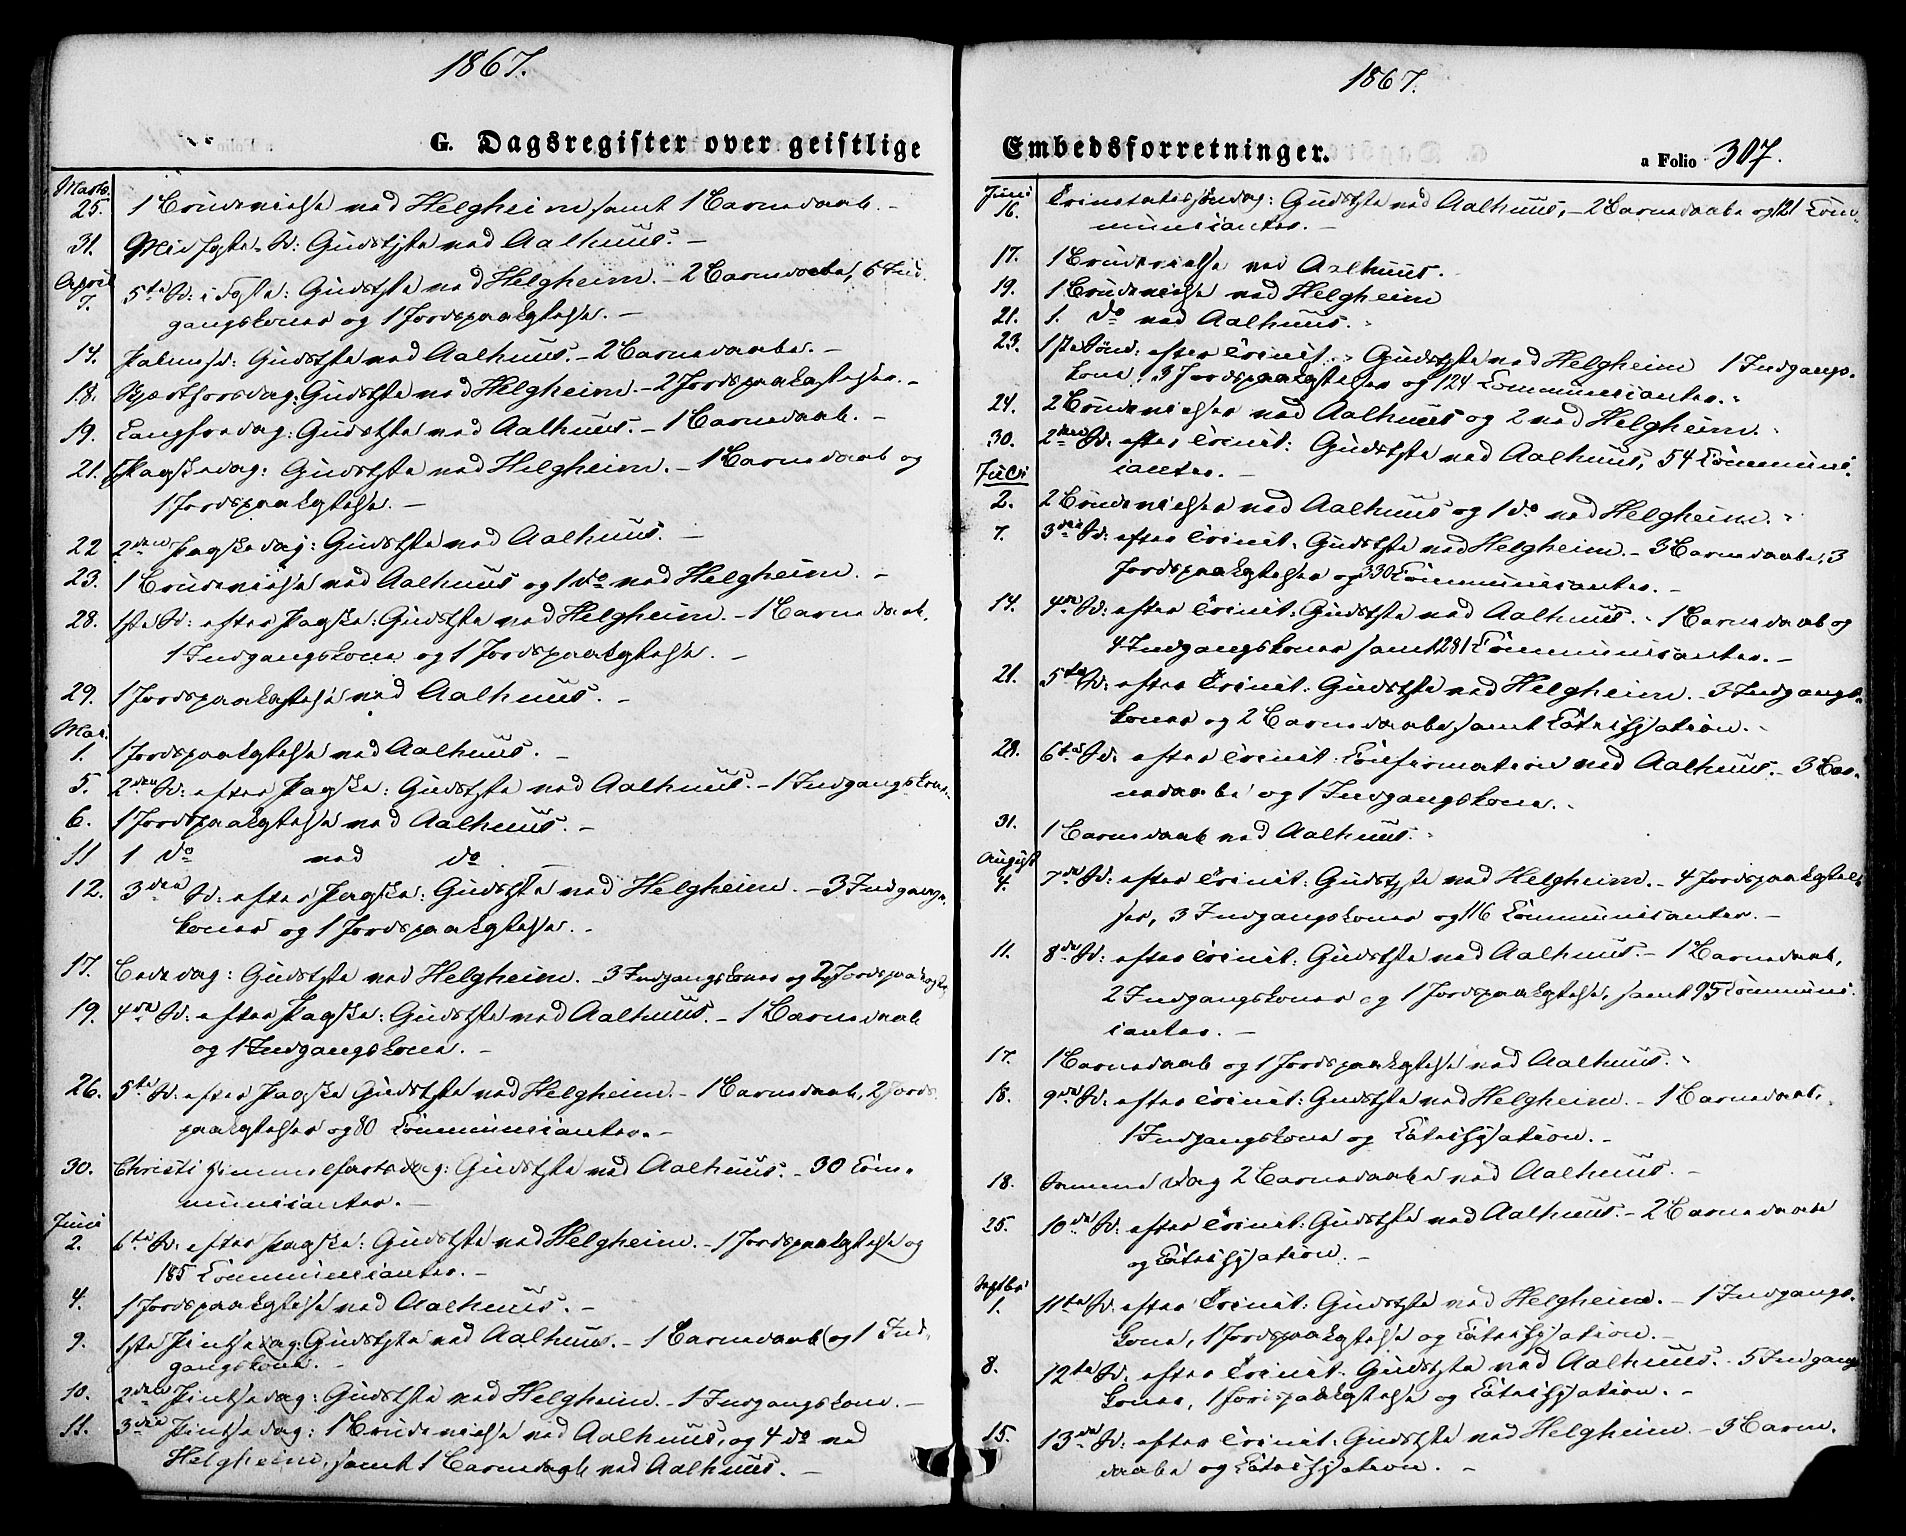 1867.
G. Dagsregister over geistlige
Marts.
25. 1 Brudevielse ved Helgheim samt 1 Barnedaab. -
31. Midfaste S: Gudstjste ved Aalhuus. -
April
7. 5te S: i Faste: Gudstjste ved Helgheim. - 2 Barnedaabe, 6 Ind-
gangskoner og 1 Jordspaakastelse. -
14. Palmesd: Gudstjste ved Aalhuus. - 2 Barnedaabe. -
18. Skjærthorsdag: Gudstjste ved Helgheim. - 2 Jordspaakastelser. -
19. Langfredag: Gudstjste ved Aalhuus. - 1 Barnedaab. -
21. Paaskedag: Gudstjste ved Helgheim. - 1 Barnedaab og
1 Jordspaakastelse. -
22 2den Paaskedag: Gudstjste ved Aalhuus. -
23. 1 Brudevielse ved Aalhuus og 1 do ved Helgheim. -
28. 1ste S: efter Paaske: Gudstjste ved Helgheim. - 1 Barnedaab,
1 Indgangskone og 1 Jordspaakastelse. -
29. 1 Jordspaakastelse ved Aalhuus. -
Mai.
1. 1 Jordspaakastelse ved Aalhuus. -
5. 2den S: efter Paaske: Gudstjste ved Aalhuus. - 1 Indgangskone. -
6. 1 Jordspaakastelse ved Aalhuus. -
11 1 do ved do -
12. 3die S: efter Paaske: Gudstjste ved Helgheim. - 3 Indgangs-
koner og 1 Jordspaakastelse. -
17. Bededag: Gudstjste ved Helgheim. - 3 Indgangskoner og 2 Jordspaakastr
19. 4de S: efter Paaske: Gudstjste ved Aalhuus. - 1 Barnedaab
og 1 Indgangskone. -
26. 5te S: efter Paaske Gudstjste ved Helgheim. - 1 Barnedaab, 2 Jords-
paakastelser og 80 Communicanter. -
30. Christi Himmelfartsdag: Gudstjste ved Aalhuus. - 30 Com-
municanter. -
Juni
2. 6te S: efter Paaske: Gudstjste ved Helgheim. - 1 Jordspaakastelse og
185 Communicanter. -
4. 1 Jordspaakastelse ved Aalhuus. -
9. 1ste Pintsedag: Gudstjste ved Aalhuus. - 1 Barnedaab og 1 Ind-
gangskone. -
10. 2den Pintsedag: Gudstjste ved Helgheim. - 1 Indgangskone. -
11. 3die Pintsedag: 1 Brudevielse ved Aalhuus, og 4 do ved
Helgheim, samt 1 Barnedaab ved Aalhuus. -
1867.
Embedsforretninger.
a Folio 307.
Juni
16. Trinitatissøndag: Gudstjste ved Aalhuus, - 2 Barnedaabe og 121 Com-
municanter. -
17. 1 Brudevielse ved Aalhuus.
19. 1 Brudevielse ved Helgheim
21. 1. do ved Aalhuus. -
23. 1ste Sønd: efter Trinit. - Gudstjste ved Helgheim 1 Indgangs-
kone, 3 Jordspaakastelser og 124 Communicanter. -
24. 2 Brudevielser ved Aalhuus og 2 ved Helgheim. -
30. 2den S: efter Trinit: Gudstjste ved Aalhuus, 54 Communi-
canter. -
Juli
2. 2 Brudevielser ved Aalhuus og 1 do ved Helgheim. -
7. 3die S: efter Trinit: Gudstjste ved Helgheim. - 3 Barnedaabe, 3
Jordspaakastelser og 330 Communicanter. -
14. 4de S: efter Trinit: Gudstjste ved Aalhuus. - 1 Barnedaab og
4 Indgangskoner samt 281 Communicanter. -
21. 5te S: efter Trinit: Gudstjste ved Helgheim. - 3 Indgangs-
koner og 2 Barnedaabe, samt Catechisation. -
28. 6te S: efter Trinit: Confirmation ved Aalhuus. - 3 Bar-
nedaabe og 1 Indgangskone. -
31. 1 Barnedaab ved Aalhuus. -
August
4. 7de S: efter Trinit: Gudstjste ved Helgheim. - 4 Jordspaakastel-
ser, 3 Indgangskoner og 116 Communicanter. -
11. 8de S: efter Trinit: Gudstjste ved Aalhuus. - 1 Barnedaab,
2 Indgangskoner og 1 Jordspaakastelse, samt 95 Communi-
canter. -
17. 1 Barnedaab og 1 Jordspaakastelse ved Aalhuus. -
18. 9de S: efter Trinit: Gudstjste ved Helgheim. - 1 Barnedaab,
1 Indgangskone og Catechisation. -
18. Samme Dag 2 Barnedaabe ved Aalhuus. -
25. 10de S: efter Trinit: Gudstjste ved Aalhuus. - 2 Barnedaabe
og Catechisation. -
Septbr
1. 11te S: efter Trinit: Gudstjste ved Helgheim. - 1 Indgangs-
kone, 1 Jordspaakastelse og Catechisation. -
8. 12te S: efter Trinit: Gudstjste ved Aalhuus. - 5 Indgangs-
koner, 1 Jordspaakastelse og Catechisation. -
15. 13de S: efter Trinit: Gudstjste ved Helgheim. - 3 Barne-
daabe og Catechisation. -